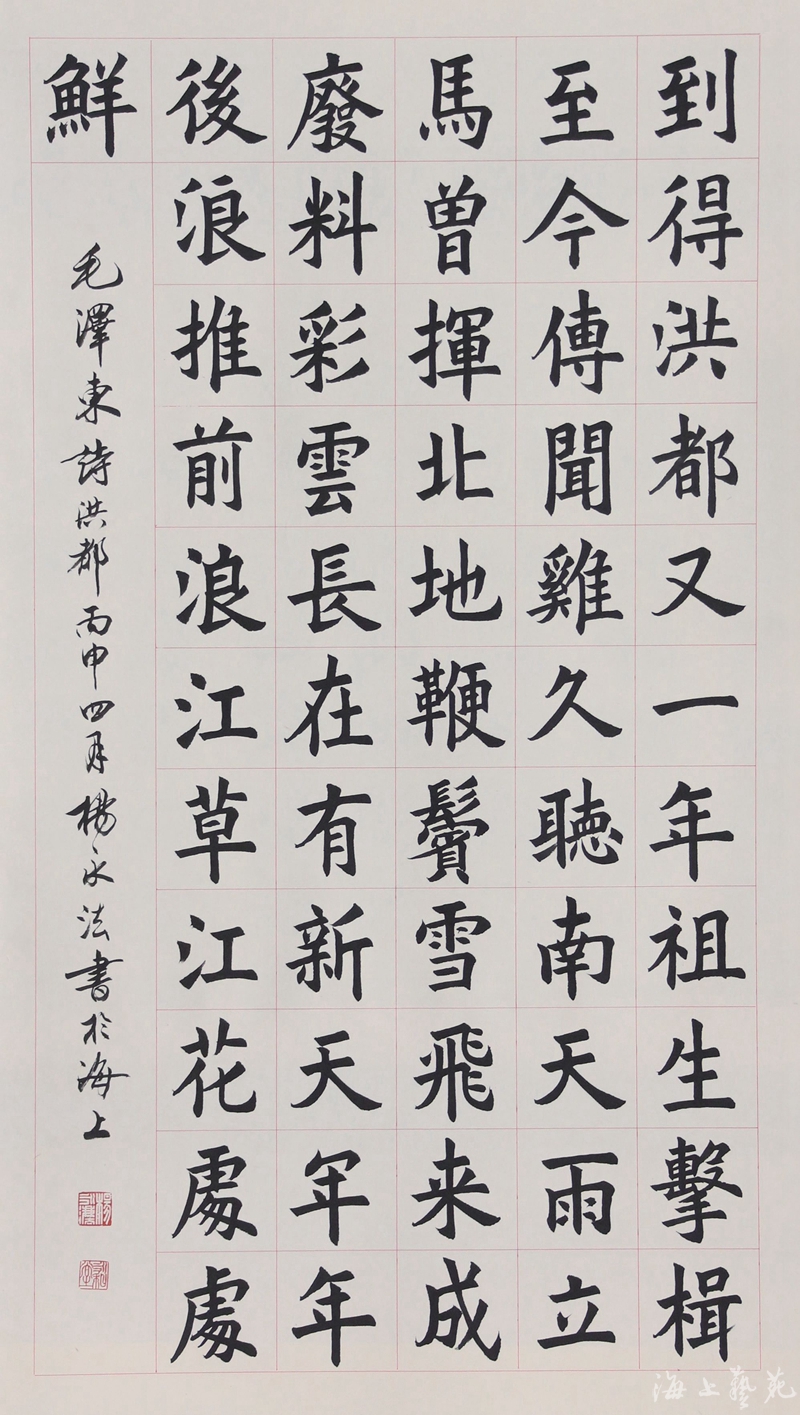 到得洪都又一年祖生擊楫
至今傳聞雞久聽南天雨立
馬曾揮北地鞭鬢雪飛来成
廢料彩雲長在有新天年年
後浪推前浪江草江花處處
鮮
毛澤東詩洪都丙申四月楊永法書於海上
海上藝苑